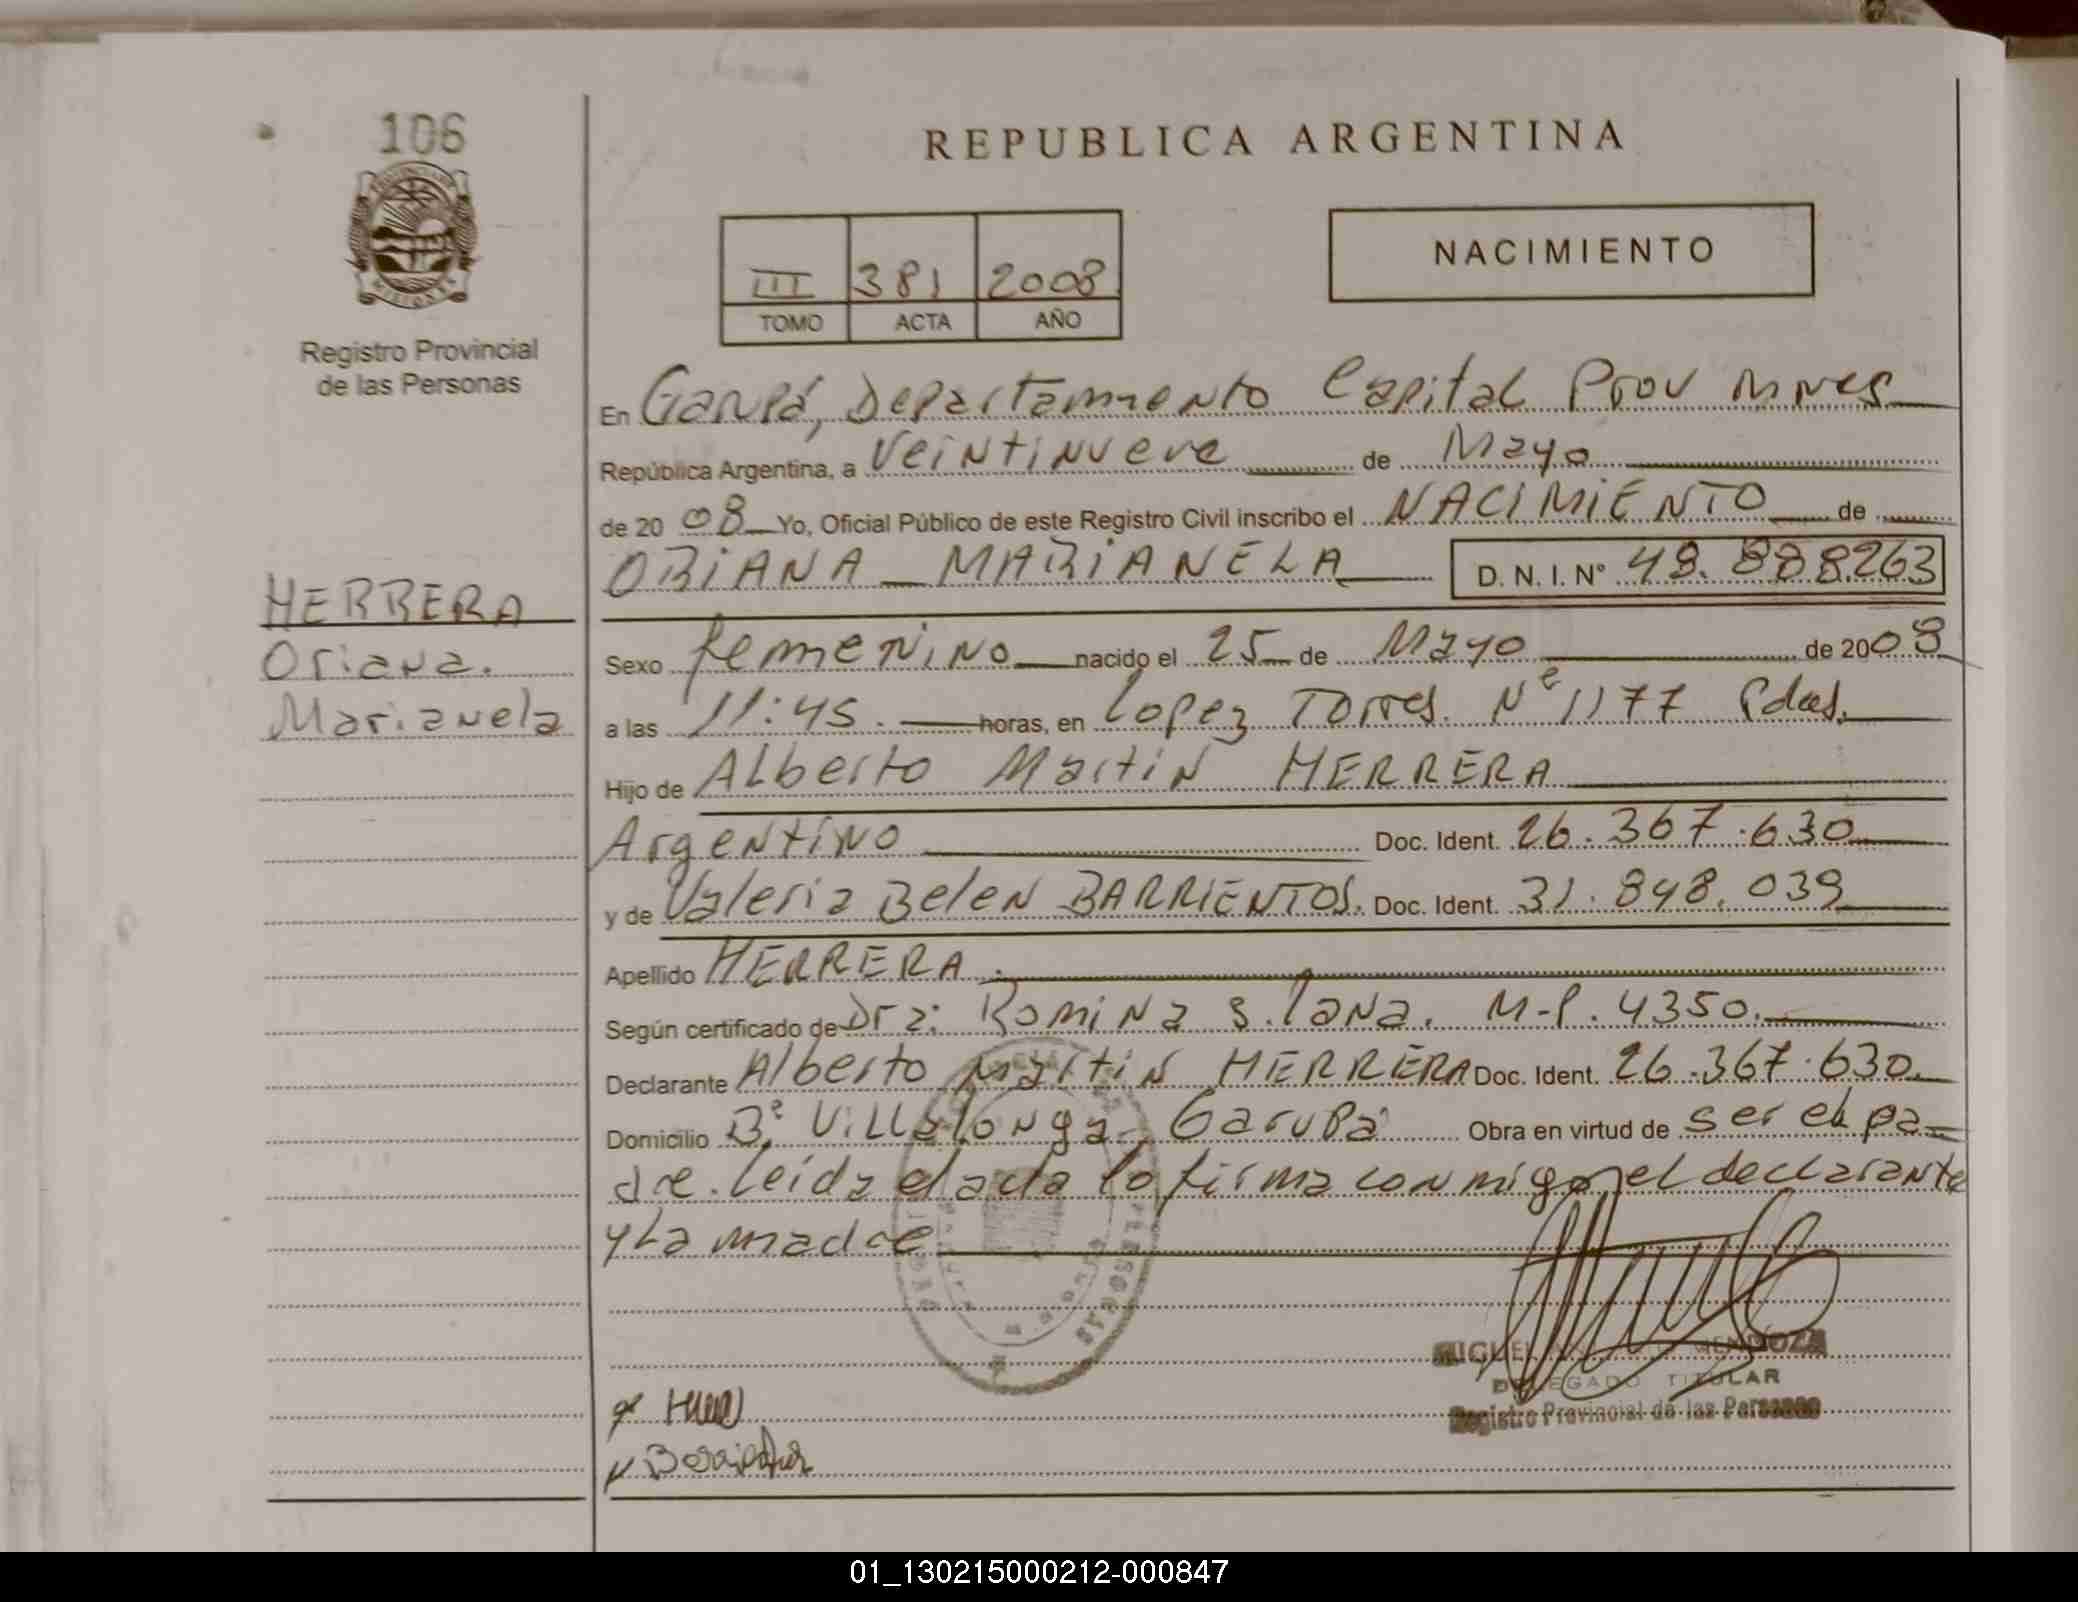 106
REPUBLICA ARGENTINA
NACIMIENTO
III 381 2008
TOMO ACTA AÑO
MISIONES
Registro Provincial
de las Personas
HERRERA
Oriana.
Marianela
En Garupá, Departamento Capital Prov Mnes
República Argentina, a Veintinueve de Mayo
de 2008 Yo, Oficial Público de este Registro Civil inscribo el NACIMIENTO de
ORIANA MARIANELA D. N. I. Nº 48.888.263
Sexo femenino nacido el 25 de Mayo de 2008
a las 11:45. horas, en Lopez Torres. Nº 1177 Pdas.
Hijo de Alberto Martin HERRERA
Argentino Doc. Ident. 26.367.630
y de Valeria Belen BARRIENTOS. Doc. Ident. 31.848.039
Apellido HERRERA.
Según certificado de Dra: Romina S. M.P. 4350.
Declarante Alberto Martin HERRERA Doc. Ident. 26.367.630.
Domicilio Bº Villalonga, Garupá Obra en virtud de ser el pa-
dre. Leida el acta la firma conmigo, el declarante
y La madre
MIGUEL MENDOZA
DELEGADO TITULAR
Registro Provincial de las Personas
01_130215000212-000847